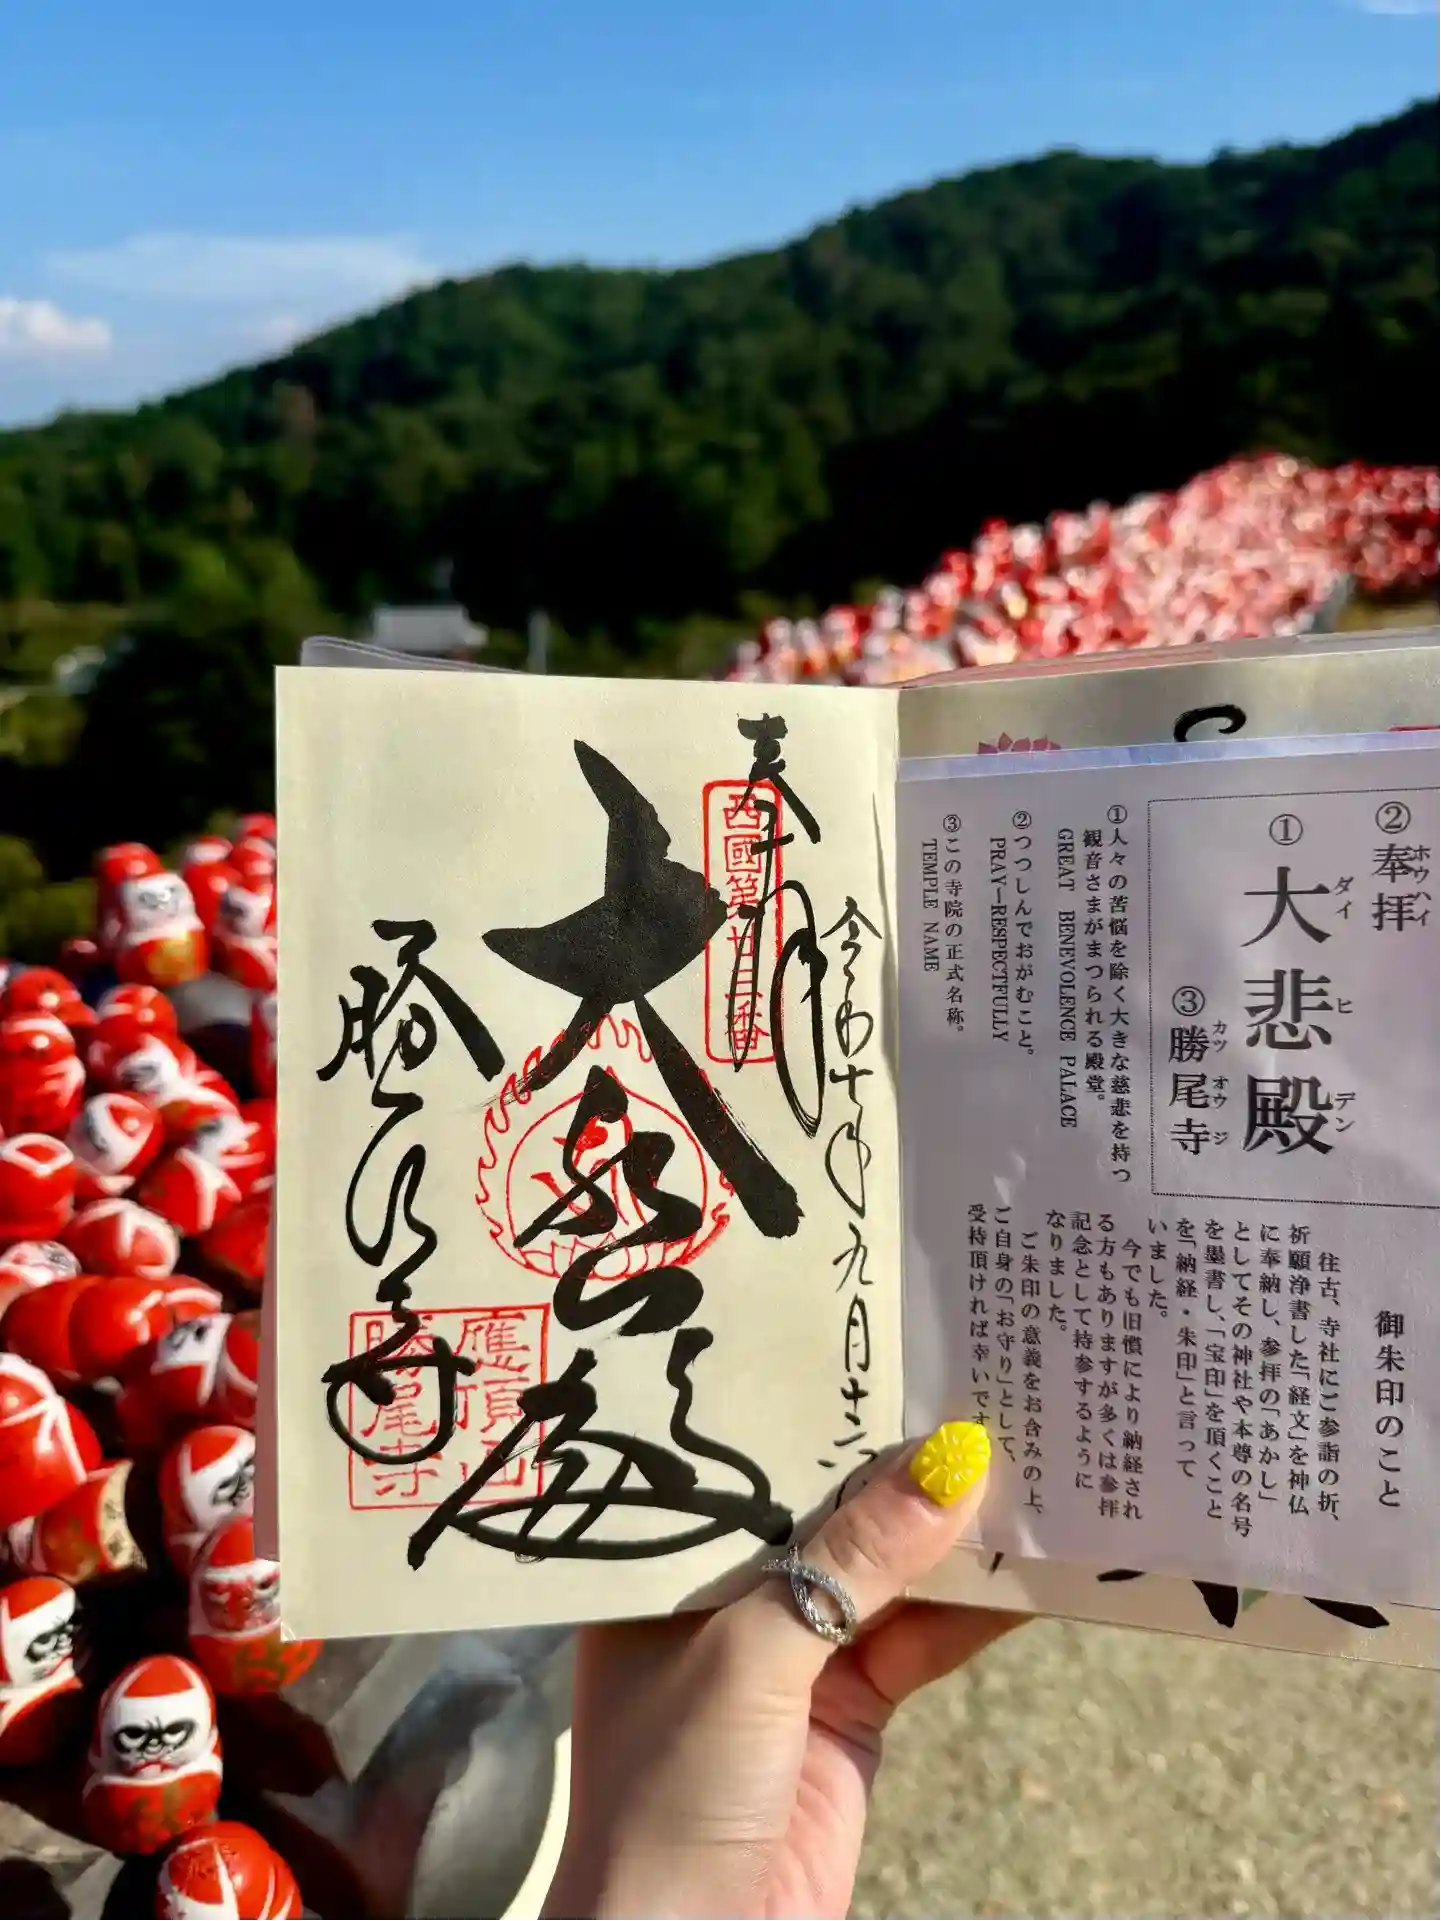 ② 奉拝
ホウハイ
① 大悲殿
ダイヒデン
③ 勝尾寺
カツオウジ
①人々の苦悩を除く大きな慈悲を持つ
観音さまがまつられる殿堂。
GREAT BENEVOLENCE PALACE
②つつしんでおがむこと。
PRAY—RESPECTFULLY
③この寺院の正式名称。
TEMPLE NAME
御朱印のこと
往古、寺社にご参詣の折、
祈願浄書した「経文」を神仏
に奉納し、参拝の「あかし」
としてその神社や本尊の名号
を墨書し、「宝印」を頂くこと
を「納経・朱印」と言って
いました。
今でも旧慣により納経され
る方もありますが多くは参拝
記念として持参するように
なりました。
ご朱印の意義をお含みの上、
ご自身の「お守り」として、
受持頂ければ幸いです
令和七年九月十二
奉拝
西國第廿三番
大悲殿
勝尾寺
應頂山
勝尾寺